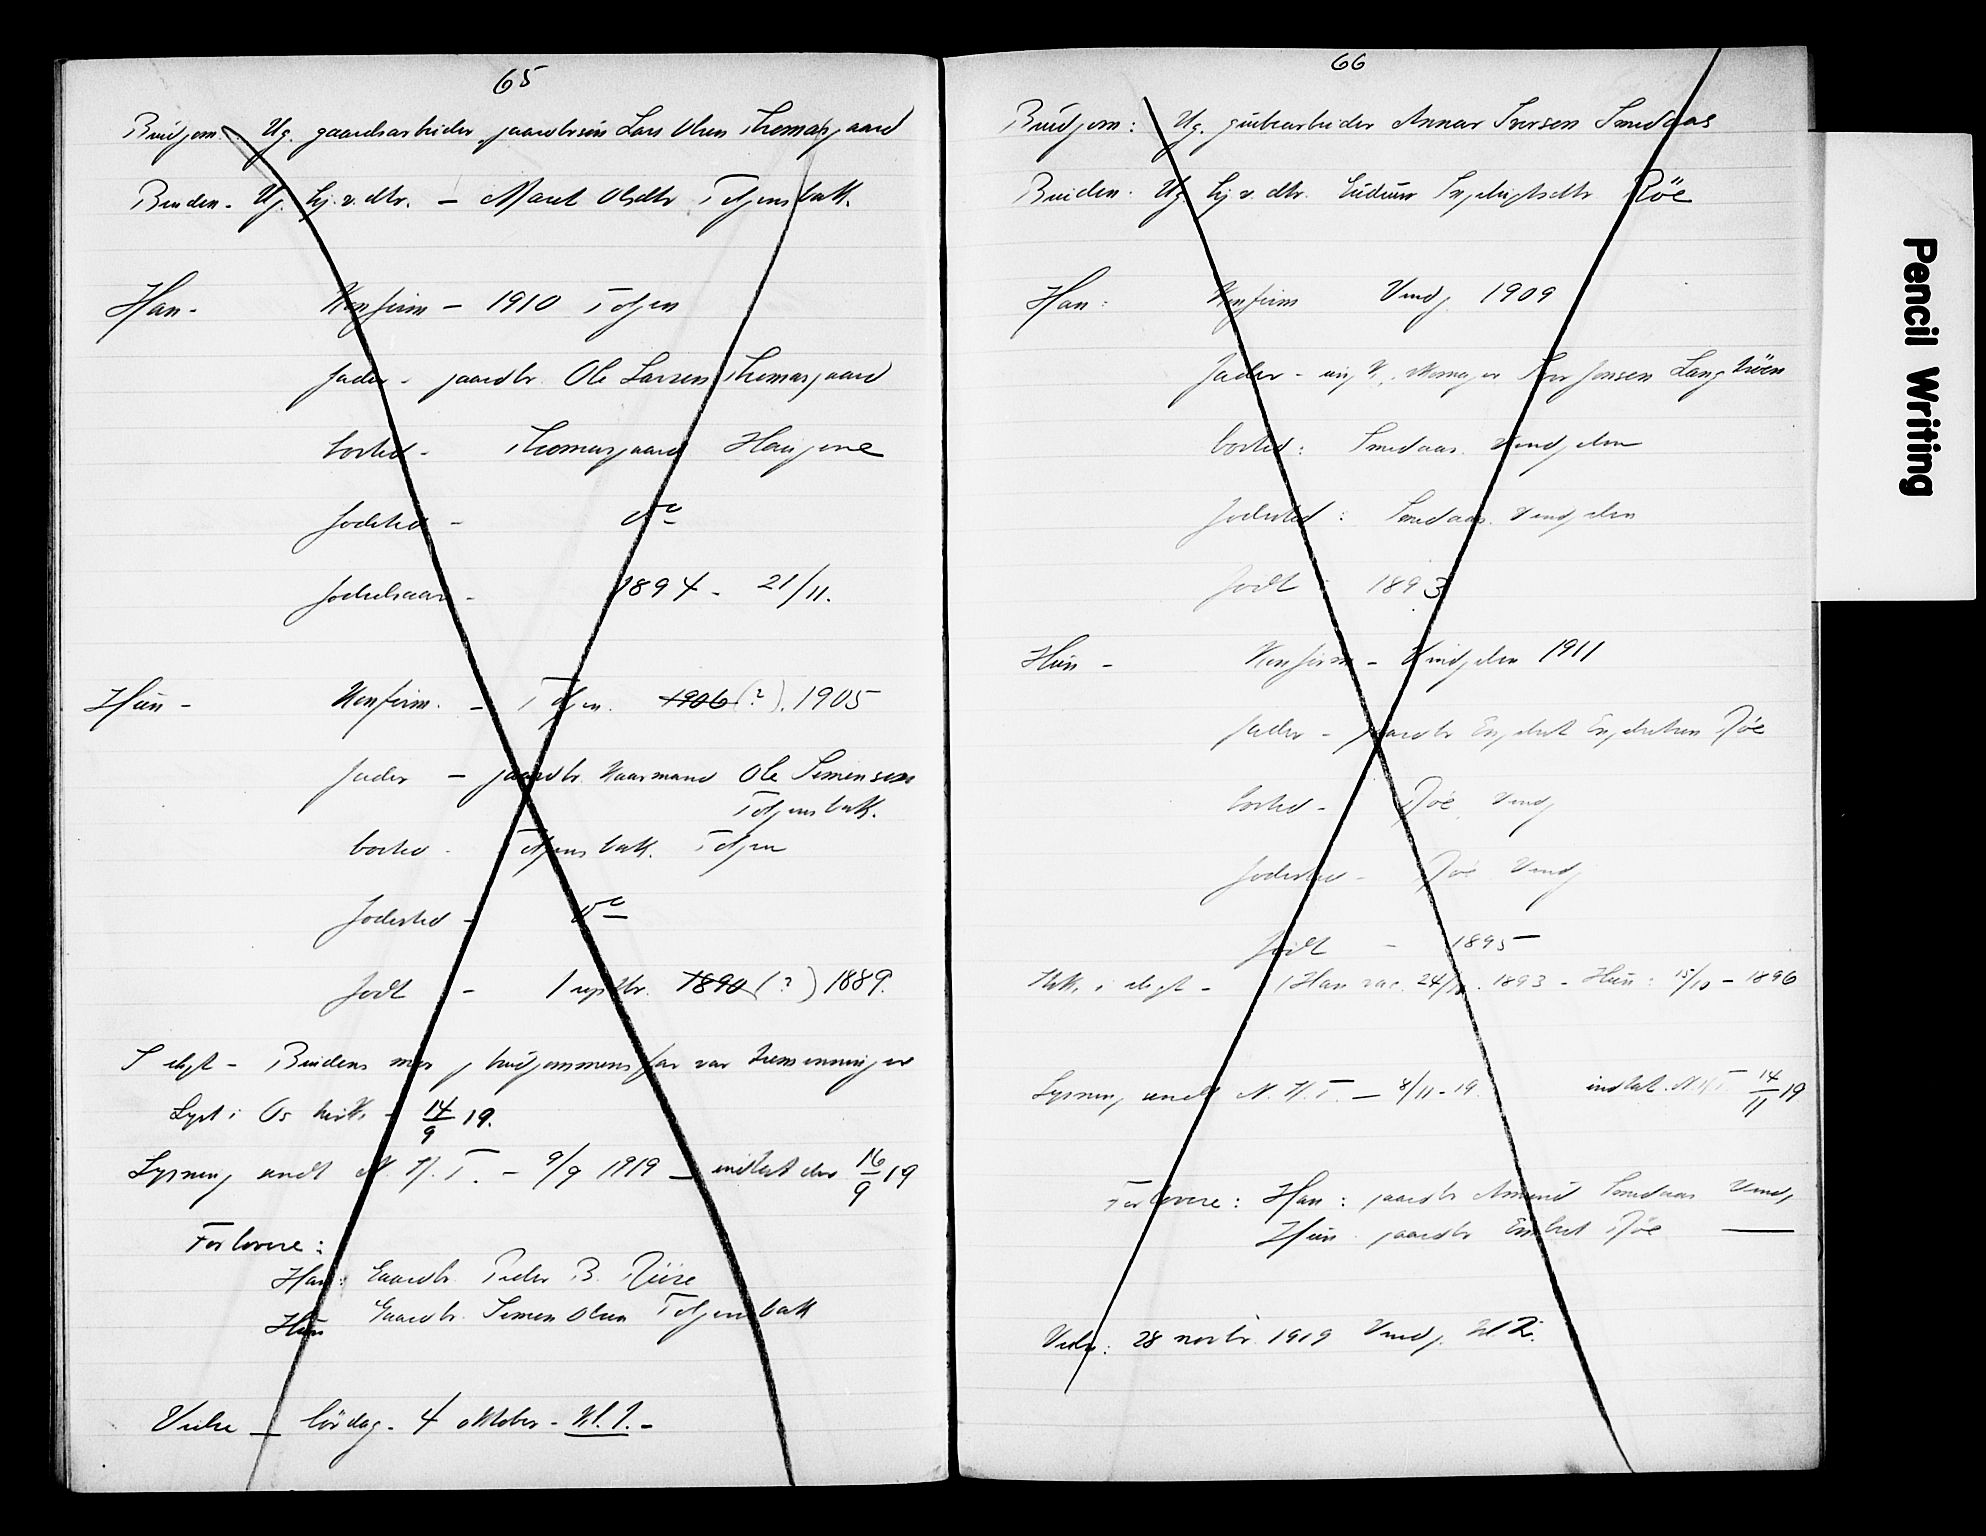 65
Brudgom. Ug. gaardsarbeider gaardbrsön Lars Olsen Thomasgaard
Bruden - Ug. hj.v. dtr. - Maret Olsdtr Tolgensbakk.
Han - Konfirm - 1910 Tolgen
fader - gaardbr. Ole Larsen Thomasgaard
bosted - Thomasgaard Hodalen
fødested - do
fødselsaar - 1894 - 21/11.
Hun - Konfirm. - Tolgen. 1906 (?). 1905
fader - gaardbr. Ole Simensen
Tolgensbakk.
bosted - Tolgensbakk. Tolgen
fødested - do
født - 1 septbr. 1890 (?) 1889.
I slegt - Brudens mor og brudgommens far var tremenninger
Lyst i Os kirke - 14/9 19.
Lysning sendt N.H.T. - 9/9 1919 - indtat den 16/9 19
Forlovere:
Han: Gaardbr. Peder B.
Hun Gaardbr. Simen Olsen Tolgensbakk
Vielse - lördag - 4 oktober - Kl. 1. -
66
Brudgom: Ug. grubearbeider Annar Iversen Smedaas
Bruden: Ug. hj.v. dtr. Engebrigtsdtr Röe
Han: Konfirm Vingj. 1909
Fader - Iver Jensen
bosted: Smedaas. Vingelen
fødested: Smedaas. Vingelen
Født: 1893
Hun - Konfirm - Vingelen 1911
fader - gaardbr Engebret Engebretsen Röe
bosted - Röe, Vingj
fødested - Röe Vingj
født - 1895
Ikke i slegt - (Han vac. 24/ . 1893 - Hun: 15/10 - 1896
Lysning sendt N.H.T. - 8/11 - 19. indtat. N.H.T. 14/11 19
Forlovere: Han: gaardbr Amund Smedaas Vingj
Hun gaardbr Engebret Röe —
Vielse: 28 novbr. 1919 Vingj. Kl 2.
Pencil Writing